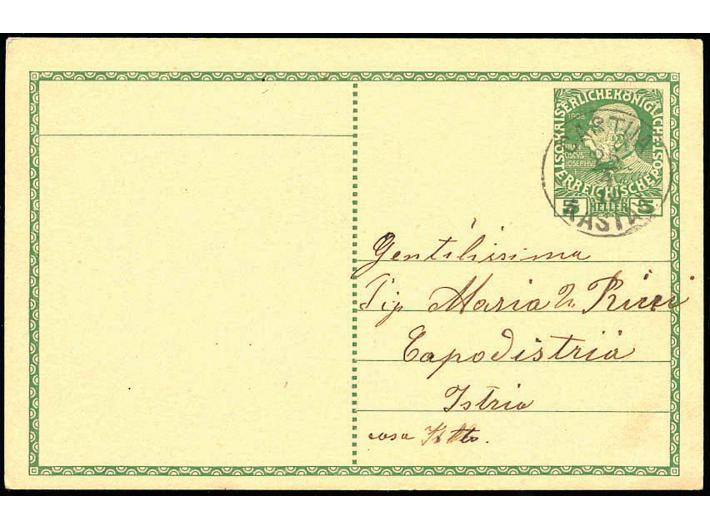 KAISERLICHEKÖNIGLICHE
ÖSTERREICHISCHE POST
5 HELLER 5
KASTAV
Gentilissima
Sig Maria Ve Ricci
Capodistria
Istria
casa